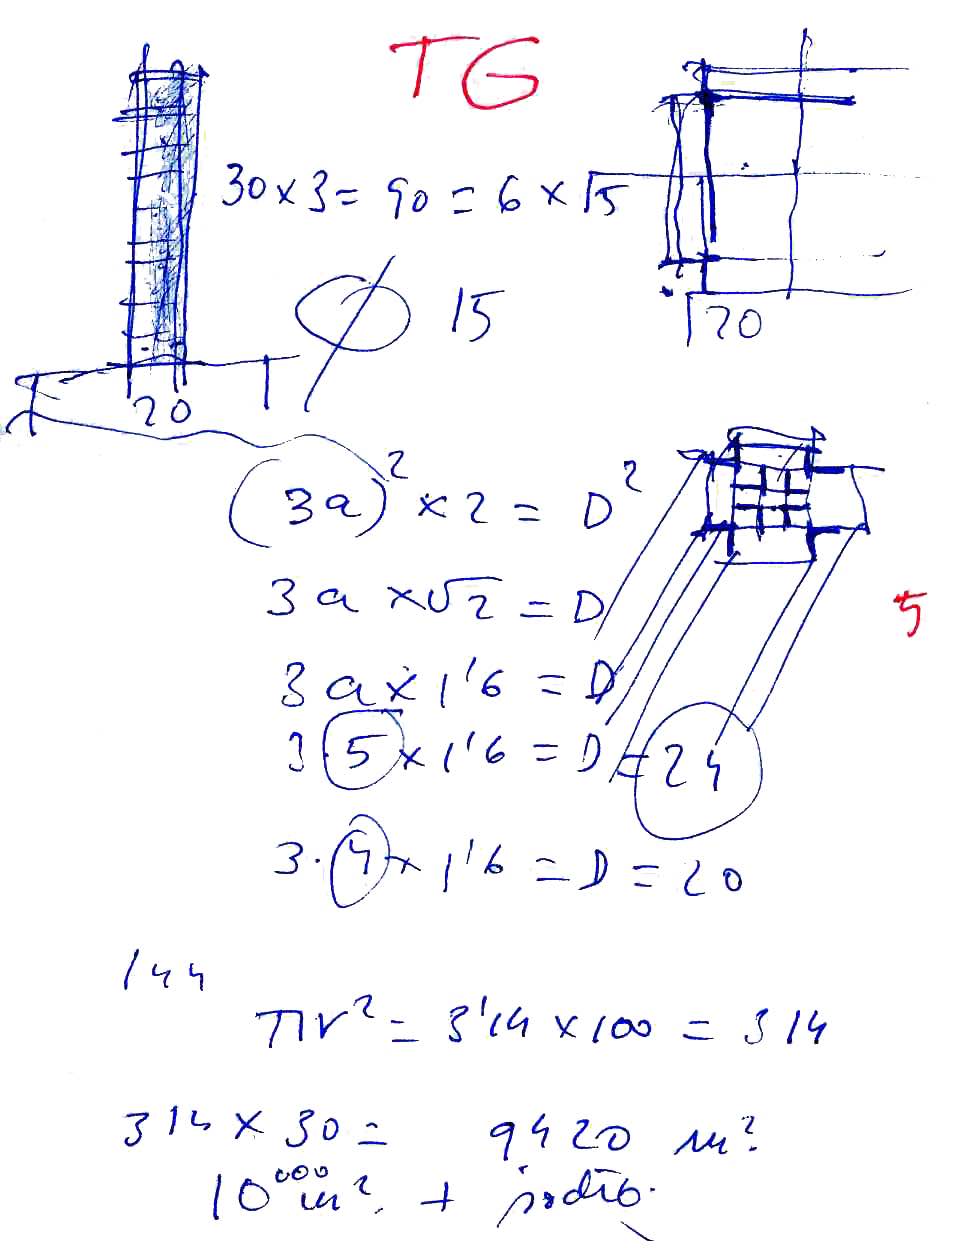 TG
30 x 3 = 90 = 6 x 15
Ø 15
20
20
(3a)² x 2 = D²
3a x √2 = D
3a x 1'6 = D
5
3 5 x 1'6 = D = 24
3 · 4 x 1'6 = D = 20
144
πr² = 3'14 x 100 = 314
314 x 30 = 9420 m².
10000 m². +